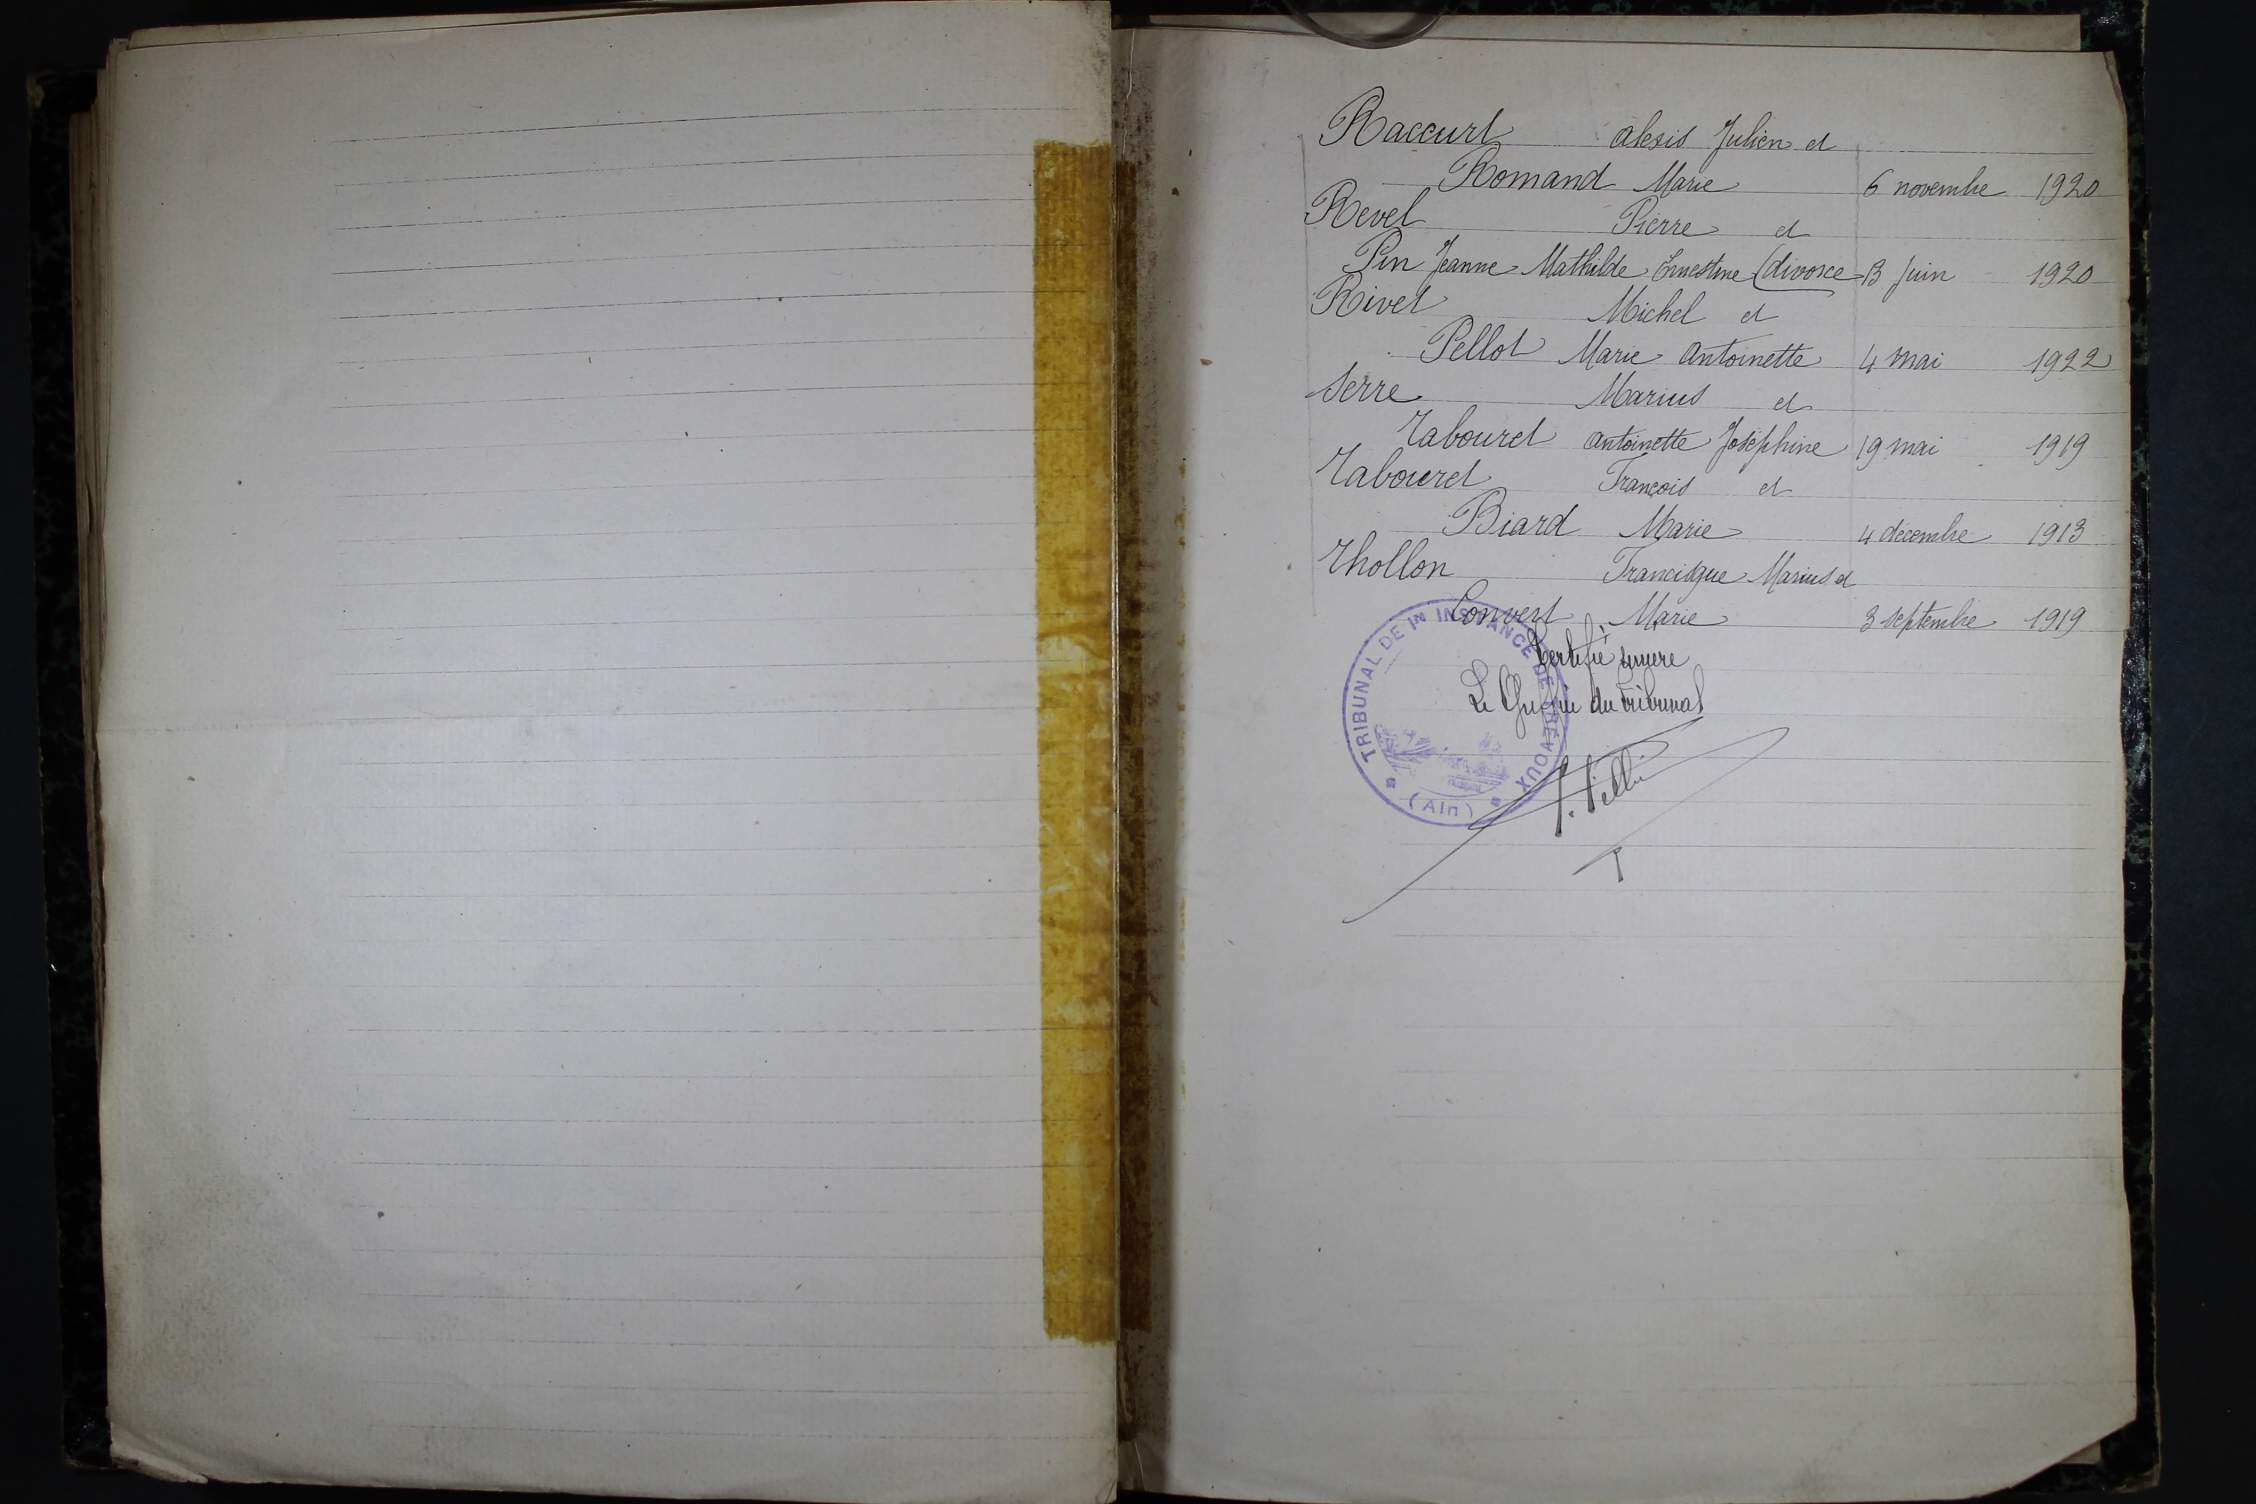 Raccurt Alexis Julien et
Romand Marie 6 novembre 1920
Revel Pierre et
Pin Jeanne Mathilde Ernestine (divorce 3 juin 1920
Rivet Michel et
Pellot Marie Antoinette 4 mai 1922
Serre Marius et
Tabouret Antoinette Joséphine 19 mai 1919
Tabouret François et
Biard Marie 4 décembre 1913
Thollon Francisque Marius et
Convert Marie 3 septembre 1919
Certifié sincère
Le Greffier du Tribunal
TRIBUNAL DE 1re INSTANCE DE TRÉVOUX
(Ain)